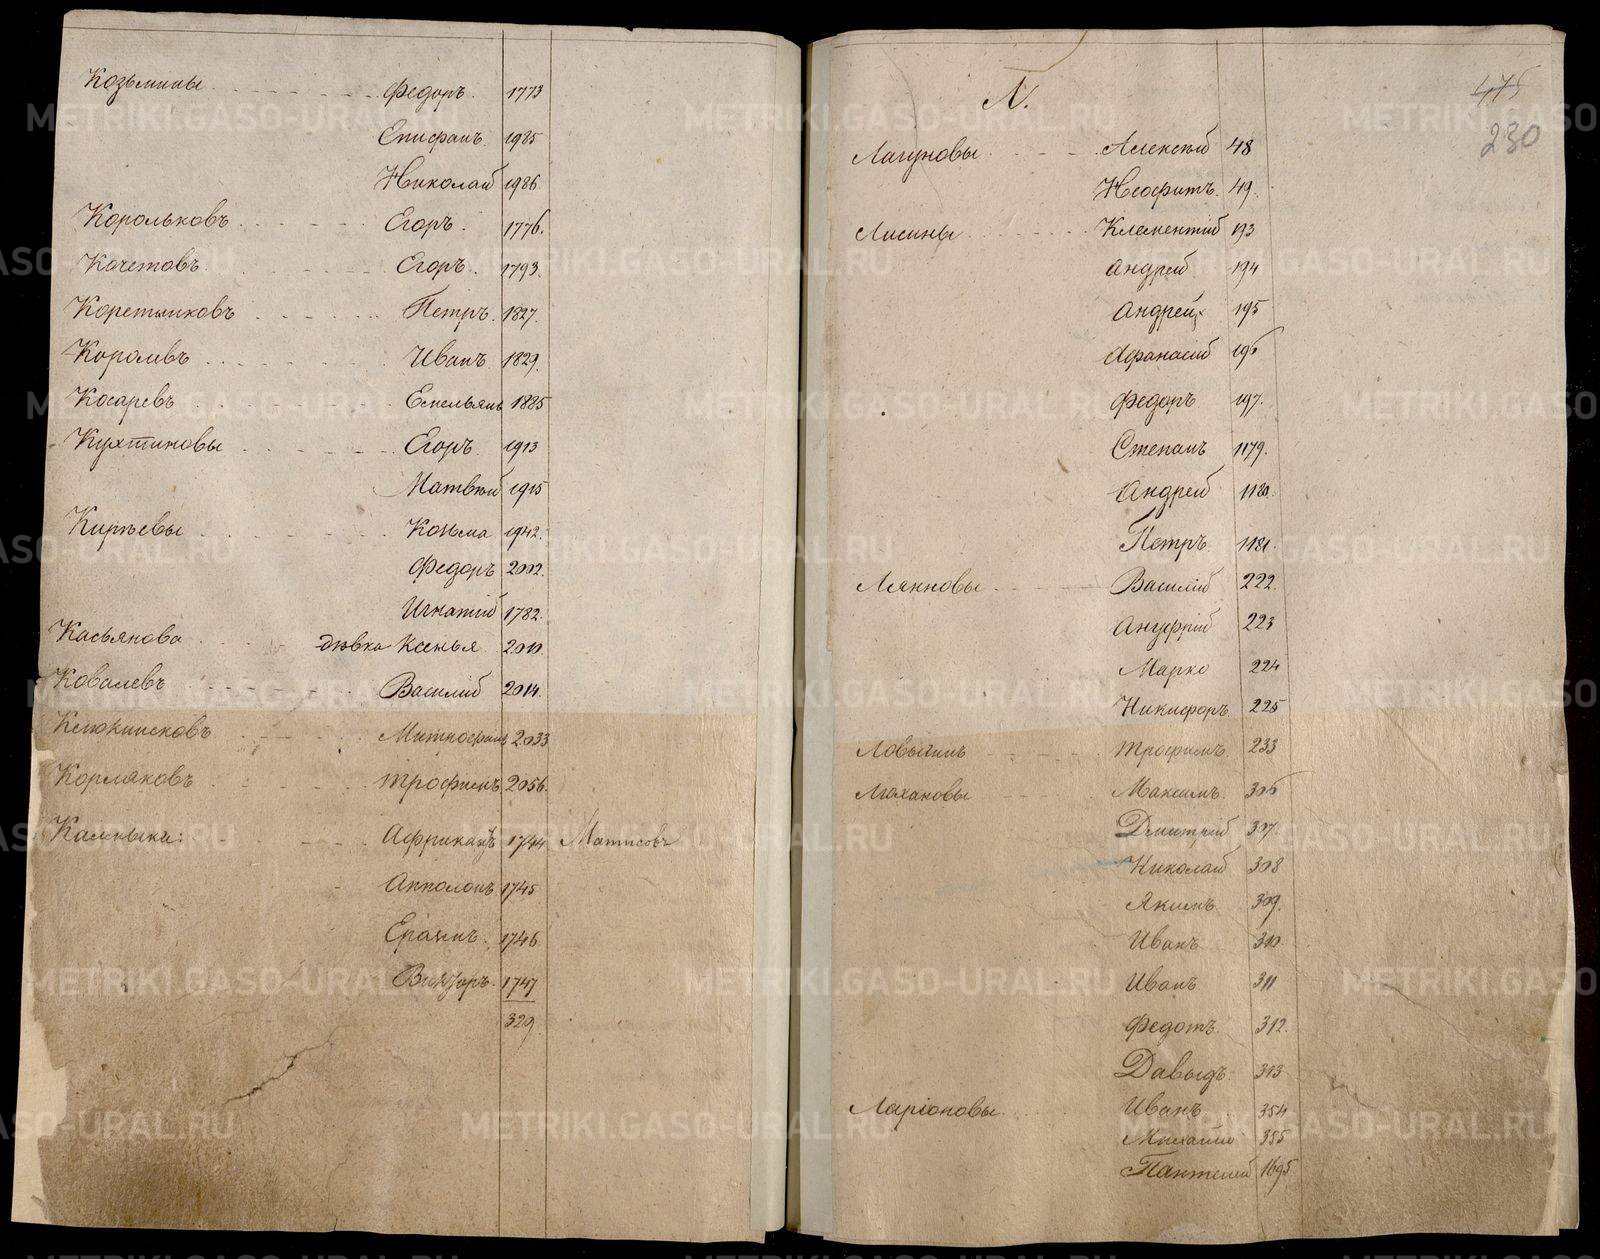 Козьмины Федоръ. 1773
Епифанъ 1985
Николай 1986
Корольковъ Егоръ. 1776.
Кочетовъ Егоръ. 1793.
Коретниковъ Петръ. 1827.
Королевъ Иванъ 1829.
Косаревъ Емельянъ 1885
Кухтиновы Егоръ 1913
Матвѣй 1915
Кирѣевы Козьма 1942.
Федоръ 2002.
Игнатій 1782.
Касьянова дѣвка Ксенья 2010.
Ковалевъ Василій 2014.
Митрофанъ 2033
Корляковъ Трофимъ 2056.
Калмыки: Африканъ 1744
Апполонъ 1745
Еразмъ 1746
Викторъ. 1747
329.
Л.
475
230
Лагуновы Алексѣй 48
Неофитъ. 49.
Лисины Клементій 193
Андрей 194
Андрей 195
Афанасій 196
Федоръ 197.
Степанъ 1179.
Андрей 1180.
Петръ. 1181.
Василій 222.
Ануфрій 223
Марко 224
Никифоръ 225
Трофимъ. 233
Максимъ. 306
Дмитрій 307.
Николай 308
Якимъ 309.
Иванъ 310
Иванъ 311
Федотъ. 312.
Давыдъ. 313
Ларіоновы Иванъ 354
Михайло 355
Пантелей 1695
METRIKI.GASO-URAL.RU